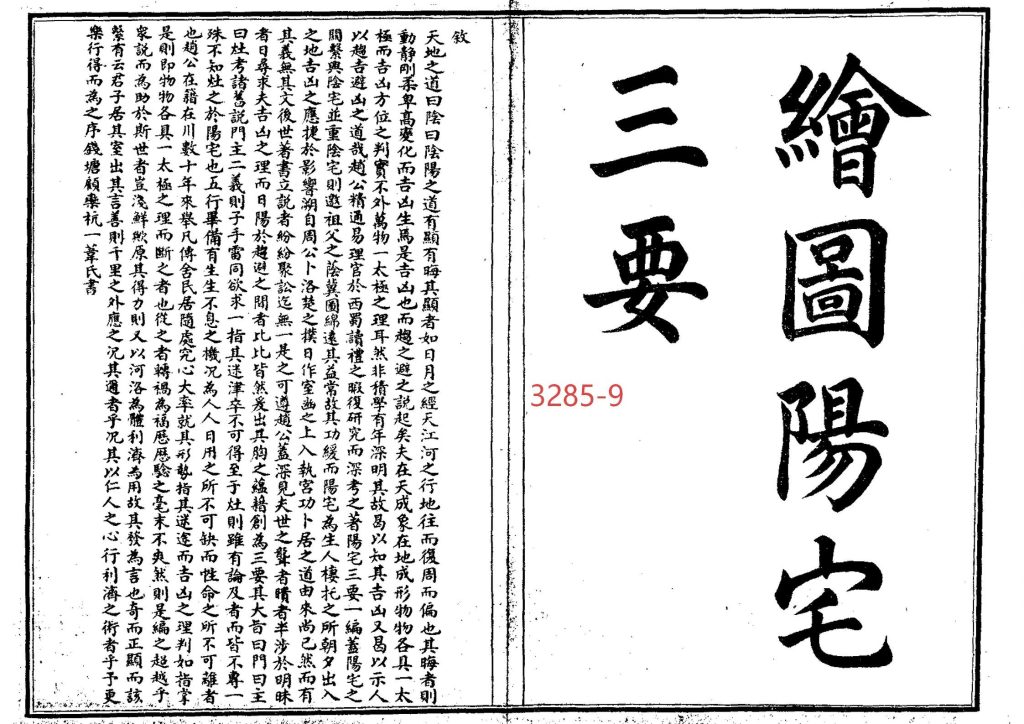 繪圖陽宅
三要
3285-9
敘
天地之道曰陰曰陽陰陽之道有顯有晦其顯者如日月之經天江河之行地往而復周而偏也其晦者則
動靜剛柔卑高變化而吉凶生焉是吉凶也而趨之避之說起矣夫在天成象在地成形物物各具一太
極而吉凶方位之判實不外萬物一太極之理耳然非積學有年深明其故曷以知其吉凶又曷以示人
以趨吉避凶之道哉趙公精通易理官於西蜀讀禮之暇復研究而深考之著陽宅三要一編蓋陽宅之
關繫與陰宅並重陰宅則邀祖父之蔭冀圖綿遠其益常故其功緩而陽宅為生人棲托之所朝夕出入
之地吉凶之應捷於影響溯自周公卜洛楚之揆日作室豳之上入執宮功卜居之道由來尚已然而有
其義無其文後世著書立說者紛紛聚訟迄無一是之可遵趙公蓋深見夫世之聾者瞶者半涉於明昧
者日尋求夫吉凶之理而日陽於趨避之間者比比皆然爰出其胸之蘊藉創為三要其大旨曰門曰主
曰灶考諸舊說門主二義則子手雷同欲求一指其迷津卒不可得至于灶則雖有論及者而皆不專一
殊不知灶之於陽宅也五行畢備有生生不息之機況為人人日用之所不可缺而性命之所不可離者
也趙公在籍在川數十年來舉凡傳舍民居隨處究心大率就其形勢指其迷途而吉凶之理判如指掌
是則即物物各具一太極之理而斷之者也從之者轉禍為福歷歷驗之毫末不爽然則是編之超越乎
眾說而為助於斯世者豈淺鮮歟原其得力則又以河洛為體利濟為用故其發為言也奇而正顯而該
繫有云君子居其室出其言善則千里之外應之況其邇者乎況其以仁人之心行利濟之術者乎予更
樂行得而為之序錢塘顧槃杭一葦氏書